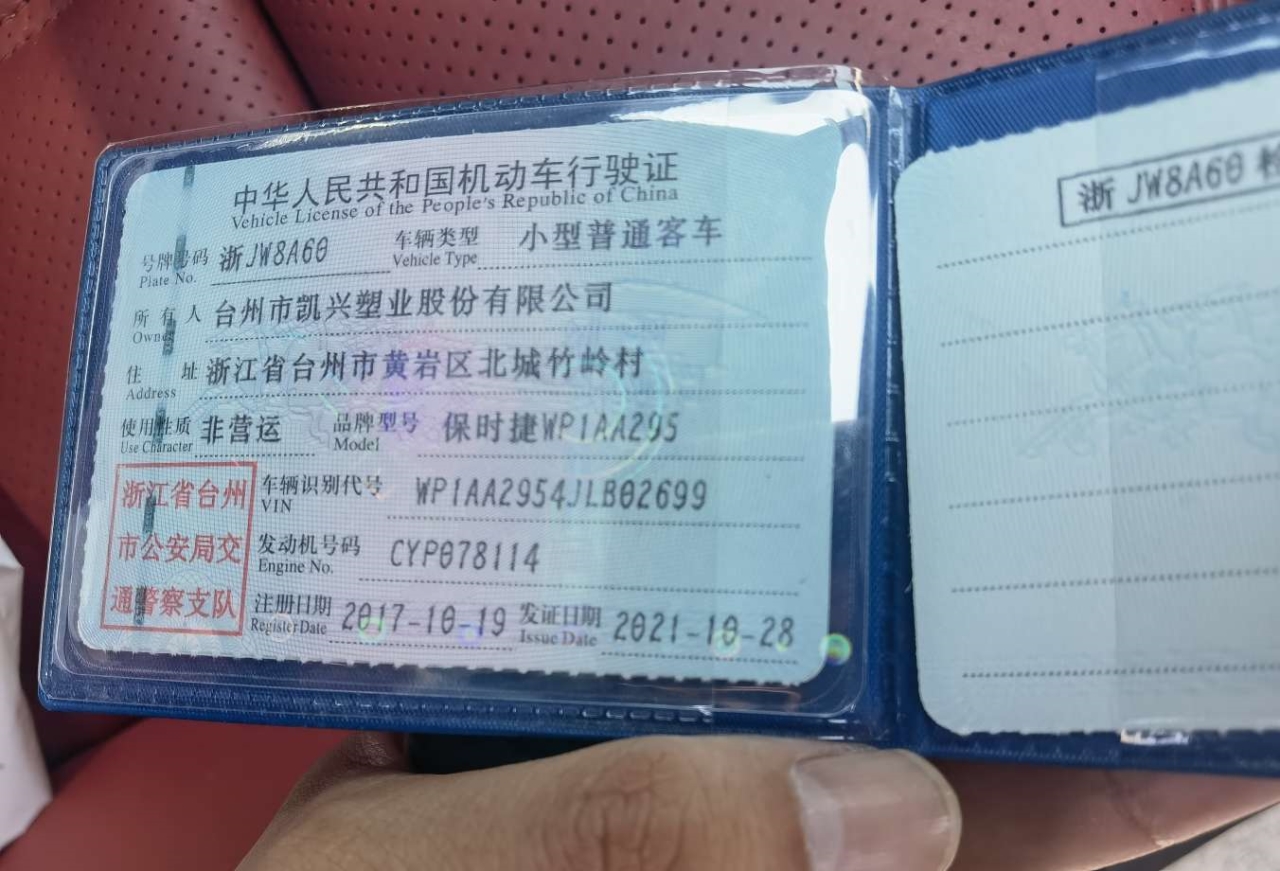 中华人民共和国机动车行驶证
Vehicle License of the People's Republic of China
号牌号码 浙JW8A60 车辆类型 小型普通客车
Plate No. Vehicle Type
所有人 台州市凯兴塑业股份有限公司
Owner
住址 浙江省台州市黄岩区北城竹岭村
Address
使用性质 非营运 品牌型号 保时捷WP1AA295
Use Character Model
浙江省台州
市公安局交
通警察支队
车辆识别代号 WP1AA2954JLB02699
VIN
发动机号码 CYP078114
Engine No.
注册日期 2017-10-19 发证日期 2021-10-28
Register Date Issue Date
浙JW8A60